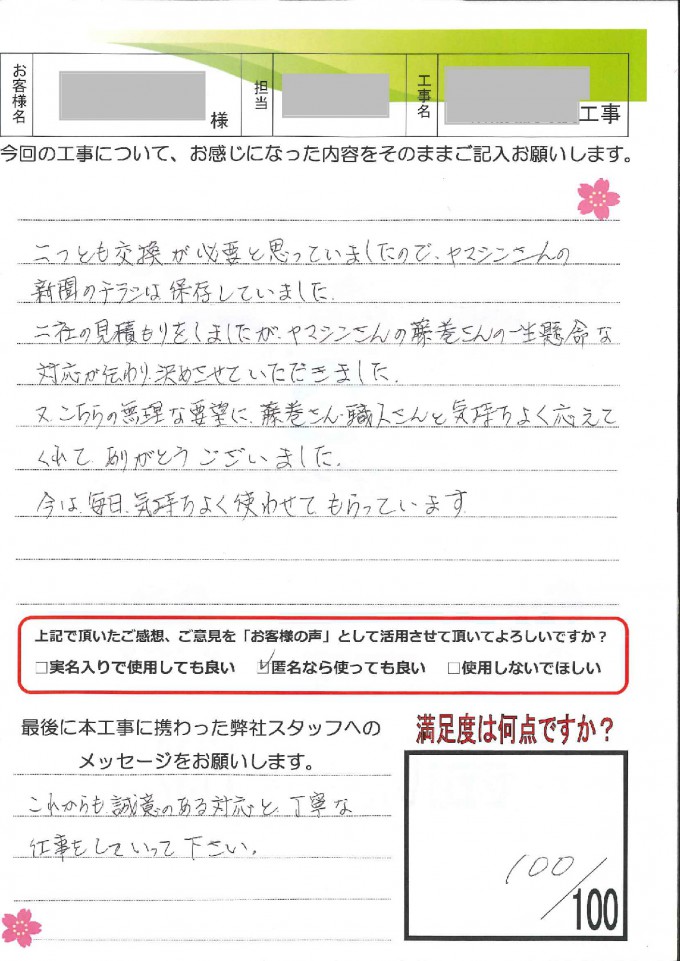 お客様名
様
担当
工事名
工事
今回の工事について、お感じになった内容をそのままご記入お願いします。
二つとも交換が必要と思っていましたので、ヤマシンさんの
新聞のチラシは保存していました。
二社の見積もりをしましたが、ヤマシンさんの藤巻さんの一生懸命な
対応が伝わり、決めさせていただきました。
又、こちらの無理な要望に、藤巻さん、職人さんと気持ちよく応えて
くれて、ありがとうございました。
今は、毎日、気持ちよく使わせてもらっています
上記で頂いたご感想、ご意見を「お客様の声」として活用させて頂いてよろしいですか？
□実名入りで使用しても良い ☑匿名なら使っても良い □使用しないでほしい
最後に本工事に携わった弊社スタッフへの
メッセージをお願いします。
これからも、誠意のある対応と、丁寧な
仕事をしていって下さい。
満足度は何点ですか？
100/100